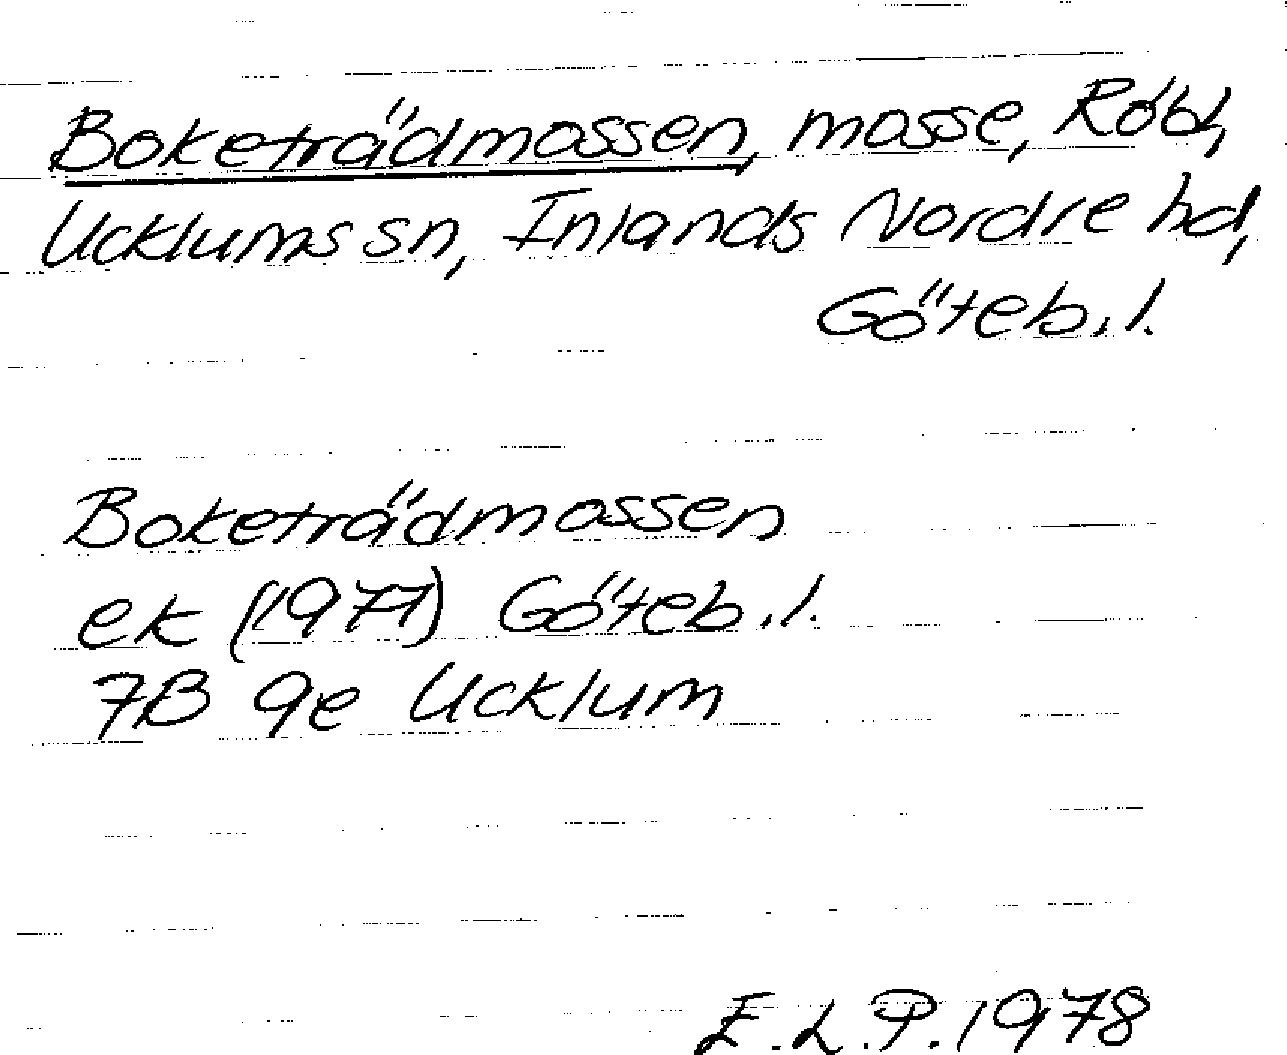 Boketrädmossen, mosse, Röbl,
Ucklums sn, Inlands Nordre hd,
Göteb.l.
Boketrädmossen
ek (1977) Göteb.l.
7B 9e Ucklum
E.L.P.1978